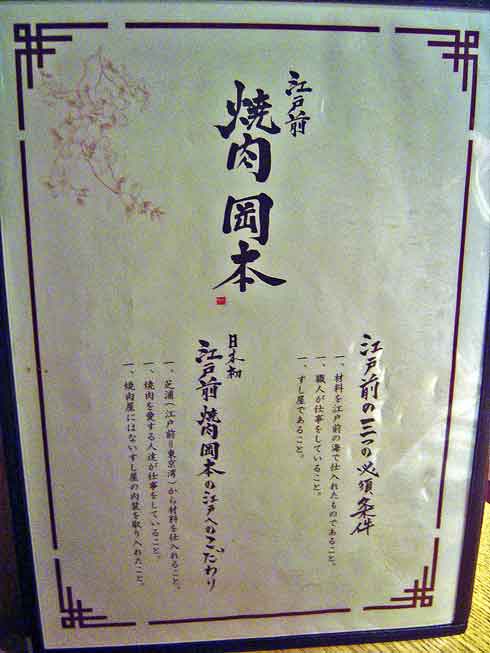 江戸前
焼肉 岡本
江戸前の三つの必須条件
一、材料を江戸前の海で仕入れたものであること。
一、職人が仕事をしていること。
一、すし屋であること。
日本初
江戸前 焼肉岡本の江戸へのこだわり
一、芝浦(江戸前=東京湾)から材料を仕入れること。
一、焼肉を愛する人達が仕事をしていること。
一、焼肉屋にはないすし屋の内装を取り入れたこと。